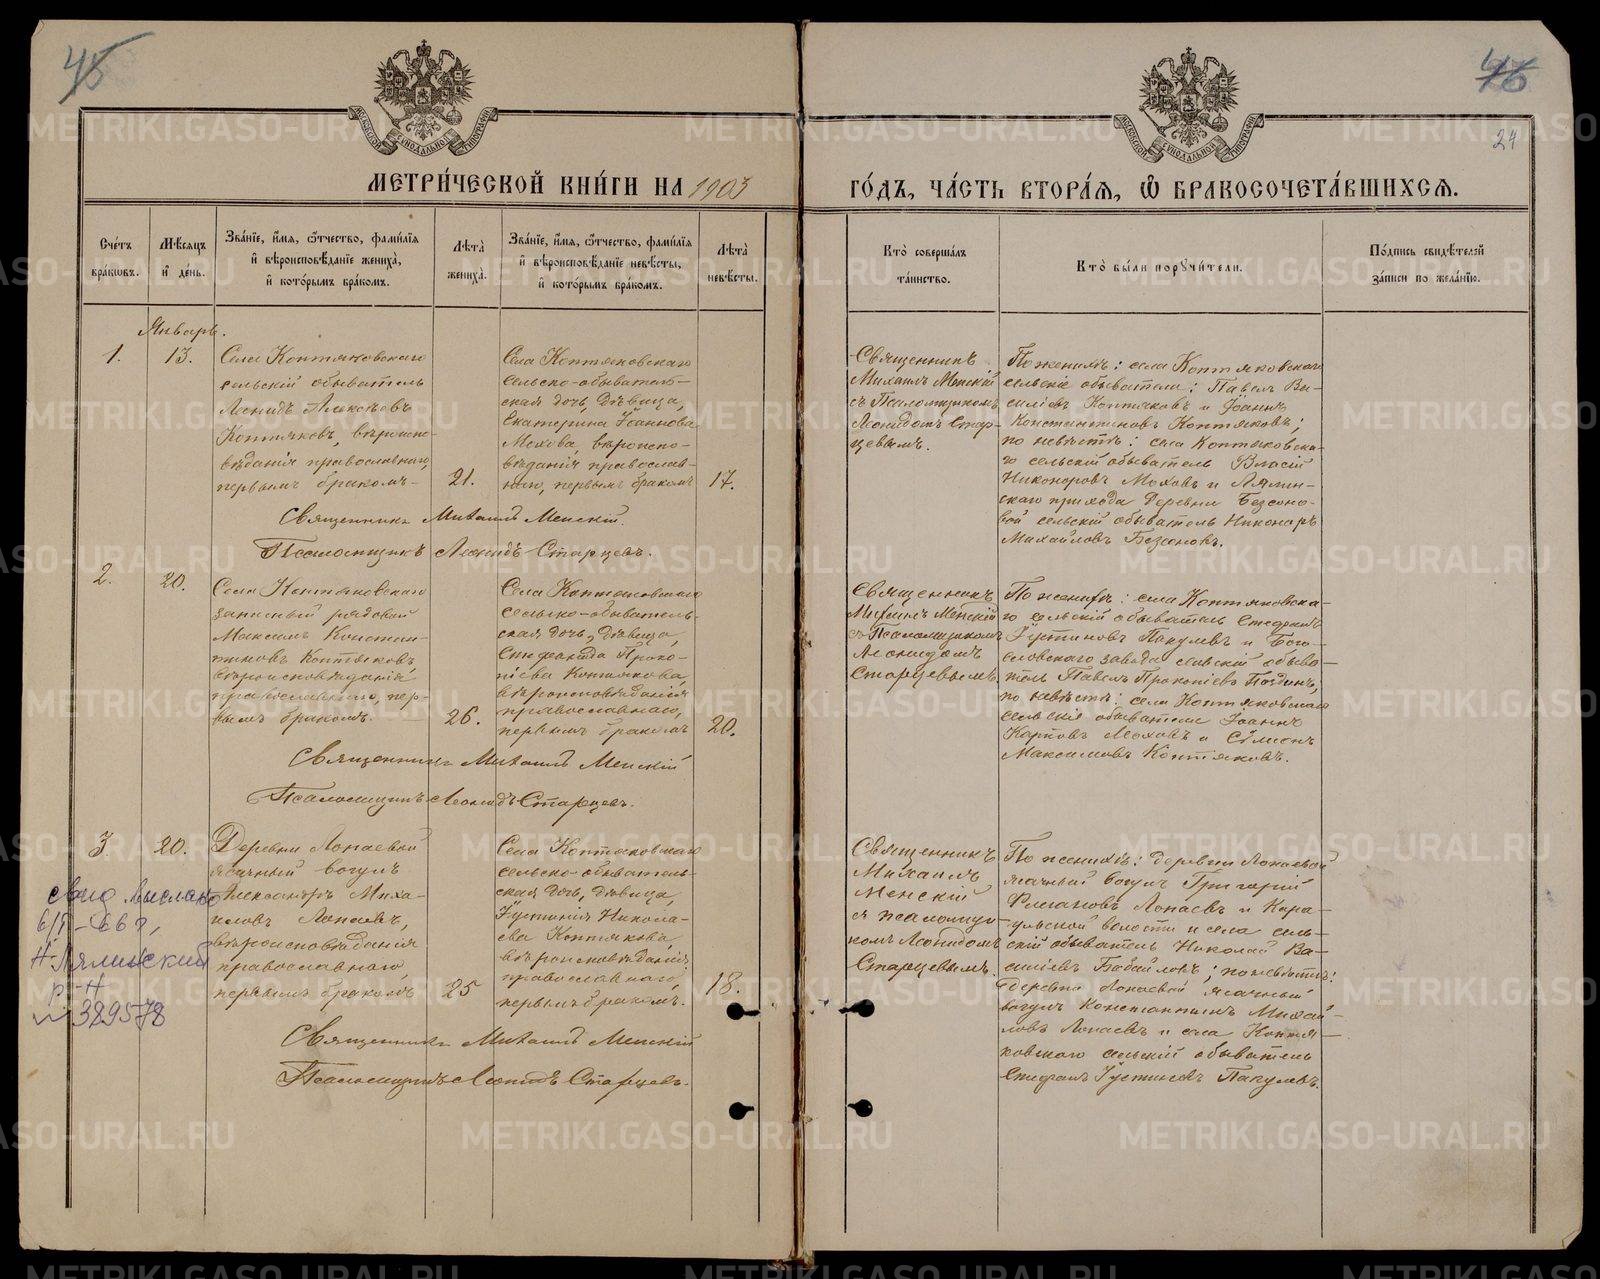 45
46
24
МЕТРИ́ЧЕСКОЙ КНИ́ГИ НА 1903
ГО́ДЪ, ЧА́СТЬ ВТОРА́Я, Ѽ БРАКОСОЧЕТА́ВШИХСЯ.
Сче́тъ
бра́ковъ.
Мѣ́сяцъ
и҆ де́нь.
Зва́нїе, и҆́мя, ѻ҆́тчество, фами́лїя
и҆ вѣроисповѣ́данїе жениха̀,
и҆ кото́рымъ бра́комъ.
Лѣ́та̀
жениха̀.
Зва́нїе, и҆́мя, ѻ҆́тчество, фами́лїя
и҆ вѣроисповѣ́данїе невѣ́сты,
и҆ кото́рымъ бра́комъ.
Лѣ́та̀
невѣ́сты.
Кто̀ соверша́лъ
та́инство.
Кто̀ бы́ли порꙋчи́тели.
По́дпись свидѣ́телей
за́писи по жела́нїю.
Январь.
1.
13.
Села Коптяковскаго
сельскій обыватель
Леонидъ Алексѣевъ
Коптяковъ, вѣроиспо-
вѣданія православнаго,
первымъ бракомъ
21.
Села Коптяковскаго
сельско-обыватель-
ская дочь, дѣвица,
Екатерина Іоаннова
Мохова, вѣроиспо-
вѣданія православ-
наго, первымъ бракомъ
17.
Священникъ
Михаилъ Менскій
съ Псаломщикомъ
Леонидомъ Стар-
цевымъ.
По женихѣ: села Коптяковскаго
сельскіе обыватели: Павелъ Ва-
силіевъ Коптяковъ и Іоаннъ
Константиновъ Коптяковъ;
по невѣстѣ: села Коптяковска-
го сельскій обыватель Власій
Никоноровъ Моховъ и Лялин-
скаго прихода деревни Безсоно-
вой сельскій обыватель Никоноръ
Михайловъ Безсоновъ.
Священникъ Михаилъ Менскій.
Псаломщикъ Леонидъ Старцевъ.
2.
20.
Села Коптяковскаго
запасный рядовой
Максимъ Констан-
тиновъ Коптяковъ,
вѣроисповѣданія
православнаго, пер-
вымъ бракомъ.
26.
Села Коптяковскаго
сельско-обыватель-
ская дочь, дѣвица
Стефанида Проко-
піева Коптякова,
вѣроисповѣданія
православнаго,
первымъ бракомъ
20.
Священникъ
Михаилъ Менскій
съ Псаломщикомъ
Леонидомъ
Старцевымъ.
По женихѣ: села Коптяковска-
го сельскій обыватель Стефанъ
Іустиновъ Пакулевъ и Бого-
словскаго завода сельскій обыва-
тель Павелъ Прокопіевъ
по невѣстѣ: села Коптяковскаго
сельскіе обыватели Іоаннъ
Карповъ Моховъ и Сѵмеонъ
Максимовъ Коптяковъ.
Священникъ Михаилъ Менскій
Псаломщикъ Леонидъ Старцевъ.
3.
20.
Деревни Лопаевой
ясачный вогулъ
Александръ Миха-
иловъ Лопаевъ,
вѣроисповѣданія
православнаго,
первымъ бракомъ
25
Села Коптяковскаго
сельско-обыватель-
ская дочь, дѣвица,
Іустинія Никола-
ева Коптякова,
вѣроисповѣданія
православнаго,
первымъ бракомъ.
18.
Священникъ
Михаилъ
Менскій
съ псаломщи-
комъ Леонидомъ
Старцевымъ.
По женихѣ: деревни Лопаевой
ясачный вогулъ Григорій
Лопаевъ и Кара-
ульской волости и села сель-
скій обыватель Николай Ва-
силіевъ Бабайловъ; по невѣстѣ:
деревни Лопаевой ясачный
вогулъ Константинъ Михай-
ловъ Лопаевъ и села Коптя-
ковскаго сельскій обыватель
Стефанъ Іустиновъ Пакулевъ.
Священникъ Михаилъ Менскій
Псаломщикъ Леонидъ Старцевъ.
Н-Лялинский
р-н
№ 389578